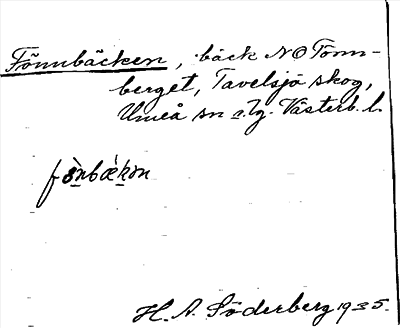 Fönnbäcken, bäck NO Fönn-
berget, Tavelsjö skog,
Umeå sn o. tg. Västerb. l.
H. A. Söderberg 1935.